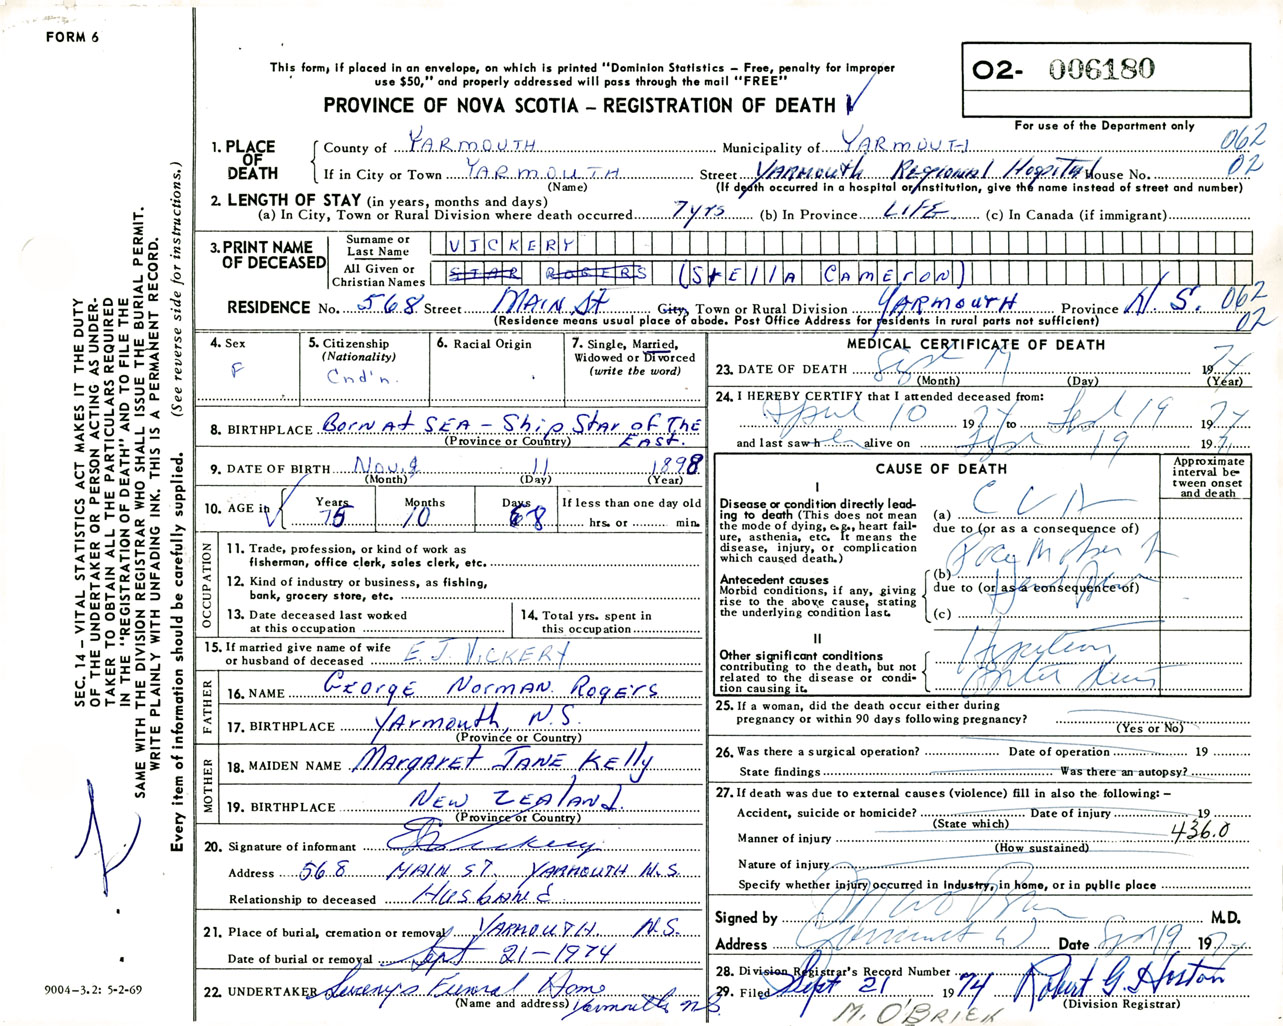 FORM 6
This form, if placed in an envelope, on which is printed "Dominion Statistics – Free, penalty for improper
use $50," and properly addressed will pass through the mail "FREE"
PROVINCE OF NOVA SCOTIA – REGISTRATION OF DEATH
O2- 006180
For use of the Department only
1. PLACE OF DEATH
County of YARMOUTH Municipality of YARMOUTH 062
If in City or Town YARMOUTH Street YARMOUTH REGIONAL HOSPITAL House No. 02
(Name) (If death occurred in a hospital or institution, give the name instead of street and number)
2. LENGTH OF STAY (in years, months and days)
(a) In City, Town or Rural Division where death occurred 7 yrs (b) In Province LIFE (c) In Canada (if immigrant)
3. PRINT NAME OF DECEASED
Surname or Last Name VICKERY
All Given or Christian Names STAR ROGERS (STELLA CAMERON)
RESIDENCE No. 568 Street MAIN ST City, Town or Rural Division YARMOUTH Province N.S. 062
(Residence means usual place of abode. Post Office Address for residents in rural parts not sufficient) 02
4. Sex
F
5. Citizenship
(Nationality)
Cnd'n.
6. Racial Origin
7. Single, Married,
Widowed or Divorced
(write the word)
8. BIRTHPLACE Born At SEA – Ship Star of The East.
(Province or Country)
9. DATE OF BIRTH Nov. 11 1898
(Month) (Day) (Year)
10. AGE in
Years Months Days If less than one day old
75 10 8 hrs. or min.
OCCUPATION
11. Trade, profession, or kind of work as
fisherman, office clerk, sales clerk, etc.
12. Kind of industry or business, as fishing,
bank, grocery store, etc.
13. Date deceased last worked
at this occupation
14. Total yrs. spent in
this occupation
15. If married give name of wife
or husband of deceased E. J. VICKERY
FATHER
16. NAME George Norman Rogers
17. BIRTHPLACE Yarmouth, N.S.
(Province or Country)
MOTHER
18. MAIDEN NAME Margaret Jane Kelly
19. BIRTHPLACE New Zealand.
(Province or Country)
20. Signature of informant Vickery
Address 568 MAIN ST. YARMOUTH N.S.
Relationship to deceased Husband
21. Place of burial, cremation or removal YARMOUTH N.S.
Date of burial or removal Sept 21–1974
22. UNDERTAKER Sweeny's Funeral Home
(Name and address) Yarmouth N.S.
MEDICAL CERTIFICATE OF DEATH
23. DATE OF DEATH Sept 19 1974
(Month) (Day) (Year)
24. I HEREBY CERTIFY that I attended deceased from:
April 10 1974 to Sept 19 1974
and last saw h er alive on Sept 19 197
CAUSE OF DEATH
Approximate interval between onset and death
I
Disease or condition directly leading to death (This does not mean the mode of dying, e.g., heart failure, asthenia, etc. It means the disease, injury, or complication which caused death.)
(a) C V A
due to (or as a consequence of)
Antecedent causes
Morbid conditions, if any, giving rise to the above cause, stating the underlying condition last.
(b)
due to (or as a consequence of)
(c)
II
Other significant conditions
contributing to the death, but not
related to the disease or condition causing it.
25. If a woman, did the death occur either during
pregnancy or within 90 days following pregnancy?
(Yes or No)
26. Was there a surgical operation? Date of operation 19
State findings Was there an autopsy?
27. If death was due to external causes (violence) fill in also the following: –
Accident, suicide or homicide? Date of injury 19
(State which)
Manner of injury 436.0
(How sustained)
Nature of injury
Specify whether injury occurred in industry, in home, or in public place
Signed by M.D.
Address Date Sept 19 1974
28. Division Registrar's Record Number
29. Filed Sept 21 1974 Robert G. Huston
(Division Registrar)
M. O'BRIEN
SEC. 14 – VITAL STATISTICS ACT MAKES IT THE DUTY
OF THE UNDERTAKER OR PERSON ACTING AS UNDER-
TAKER TO OBTAIN ALL THE PARTICULARS REQUIRED
IN THE "REGISTRATION OF DEATH" AND TO FILE THE
SAME WITH THE DIVISION REGISTRAR WHO SHALL ISSUE THE BURIAL PERMIT.
WRITE PLAINLY WITH UNFADING INK. THIS IS A PERMANENT RECORD.
Every item of information should be carefully supplied. (See reverse side for instructions.)
9004-3.2: 5-2-69